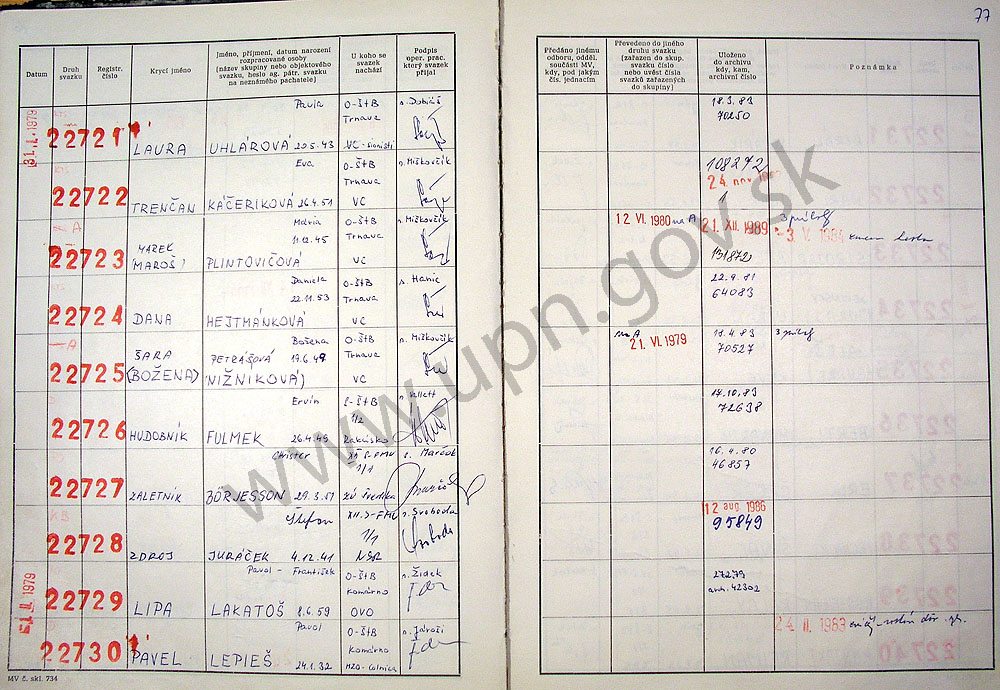 77
Datum
Druh svazku
Registr. číslo
Krycí jméno
Jméno, příjmení, datum narození rozpracované osoby (název skupiny nebo objektového svazku, heslo ag. pátr. svazku na neznámého pachatele)
U koho se svazek nachází
Podpis oper. prac. který svazek přijal
Předáno jinému odboru, odděl. součásti MV, kdy, pod jakým čís. jednacím
Převedeno do jiného druhu svazku (zařazen do skup. svazku číslo nebo uvést čísla svazků zařazených do skupiny)
Uloženo do archivu kdy, kam, archivní číslo
Poznámka
1979
22721 LAURA Pavla UHLÁROVÁ 20.5.43 O-ŠtB Trnava VC-sionisti 18.3.83 70250
22722 TRENČAN Eva KAČERIKOVÁ 26.4.51 O-ŠtB Trnava VC n.Miškovčík 108272 24
A 22723 MAREK MAROŠ Mária 11.12.45 PLINTOVIČOVÁ O-ŠtB Trnava VC n.Miškovčík 12 VI. 1980 na A 21. XII. 1989 131872 3 V.
22724 DANA Daniela 22.11.53 HEJTMÁNKOVÁ O-ŠtB Trnava VC 22.9.81 64083
A 22725 ŠARA (BOŽENA) Božena PETRÁŠOVÁ 19.6.49 NIŽNIKOVÁ) O-ŠtB Trnava VC n.Miškovčík na A 21. VI. 1979 70527
22726 HUDOBNÍK Ervín FULMEK 26.4.45 Rakúsko 17.10.83 72638
22727 ZALETNÍK Christer BÖRJESSON 29.3.51 1/1 16.4.80 46857
22728 ZDROJ Štefan JURÁČEK 4.12.41 1/1 NSR n.Svoboda 12 aug 1986 95849
22729 LIPA Pavol - František LAKATOŠ 8.6.59 O-ŠtB Komárno OVO n.Židek 27279 42302
1979
22730 PAVEL Pavol LEPIEŠ 24.1.32 O-ŠtB Komárno n.Jároši 24. II. 1983
MV č. skl. 734
www.upn.gov.sk